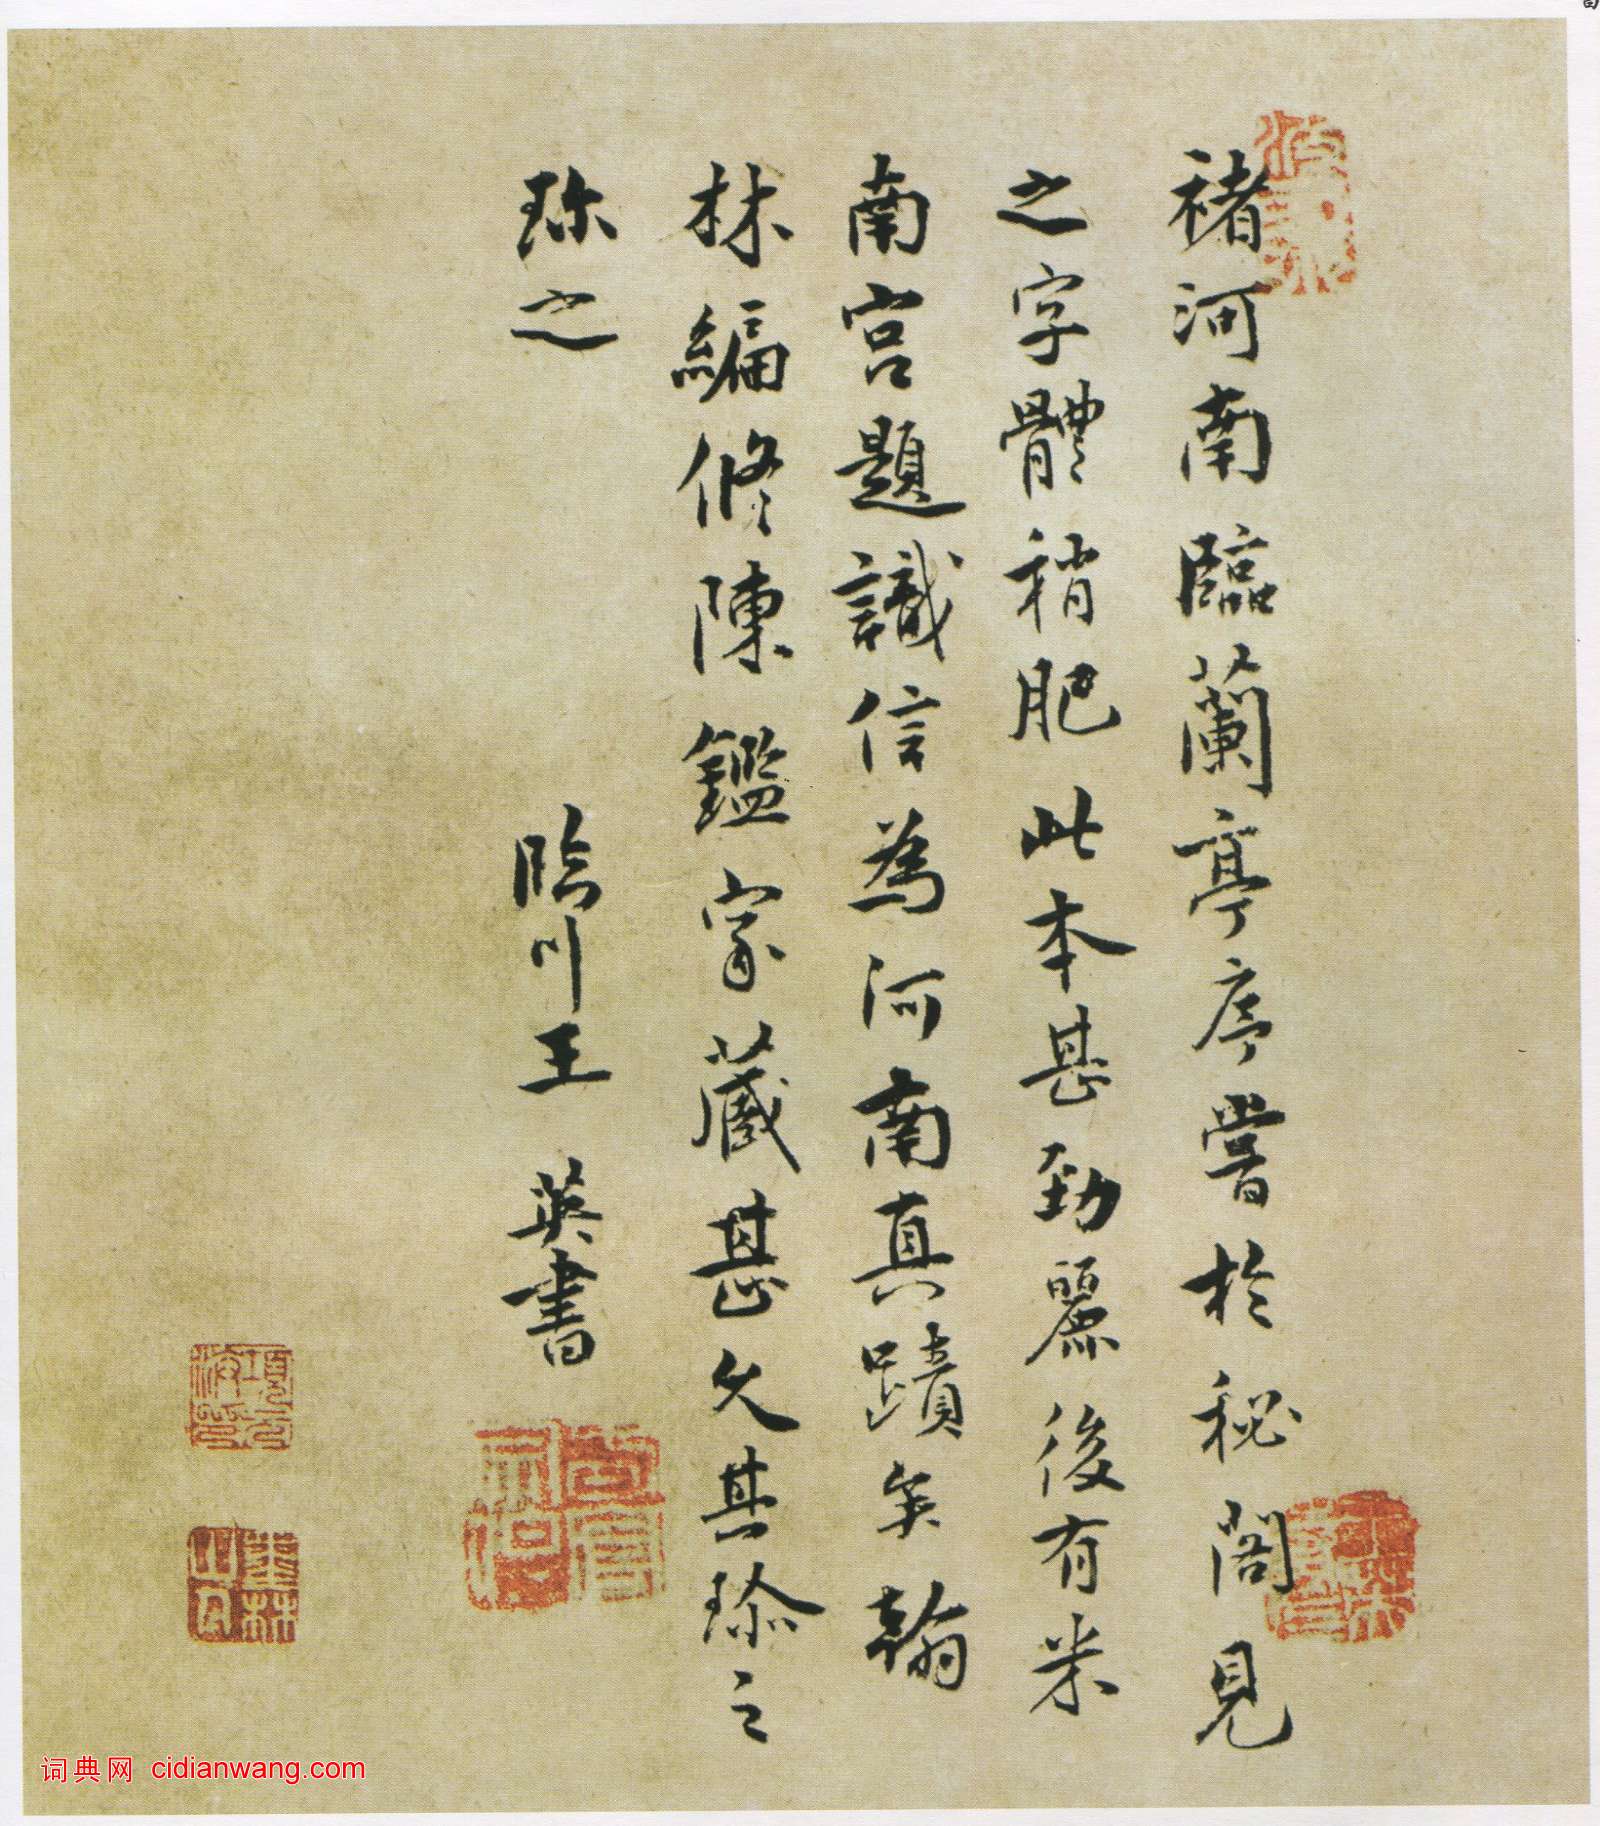 褚河南臨蘭亭序嘗於秘閣見
之字體稍肥此本甚勁麗後有米
南宮題識信為河南真蹟矣翰
林編修陳鑑家藏甚久其珍之
珎之
臨川王英書
词典网 cidianwang.com